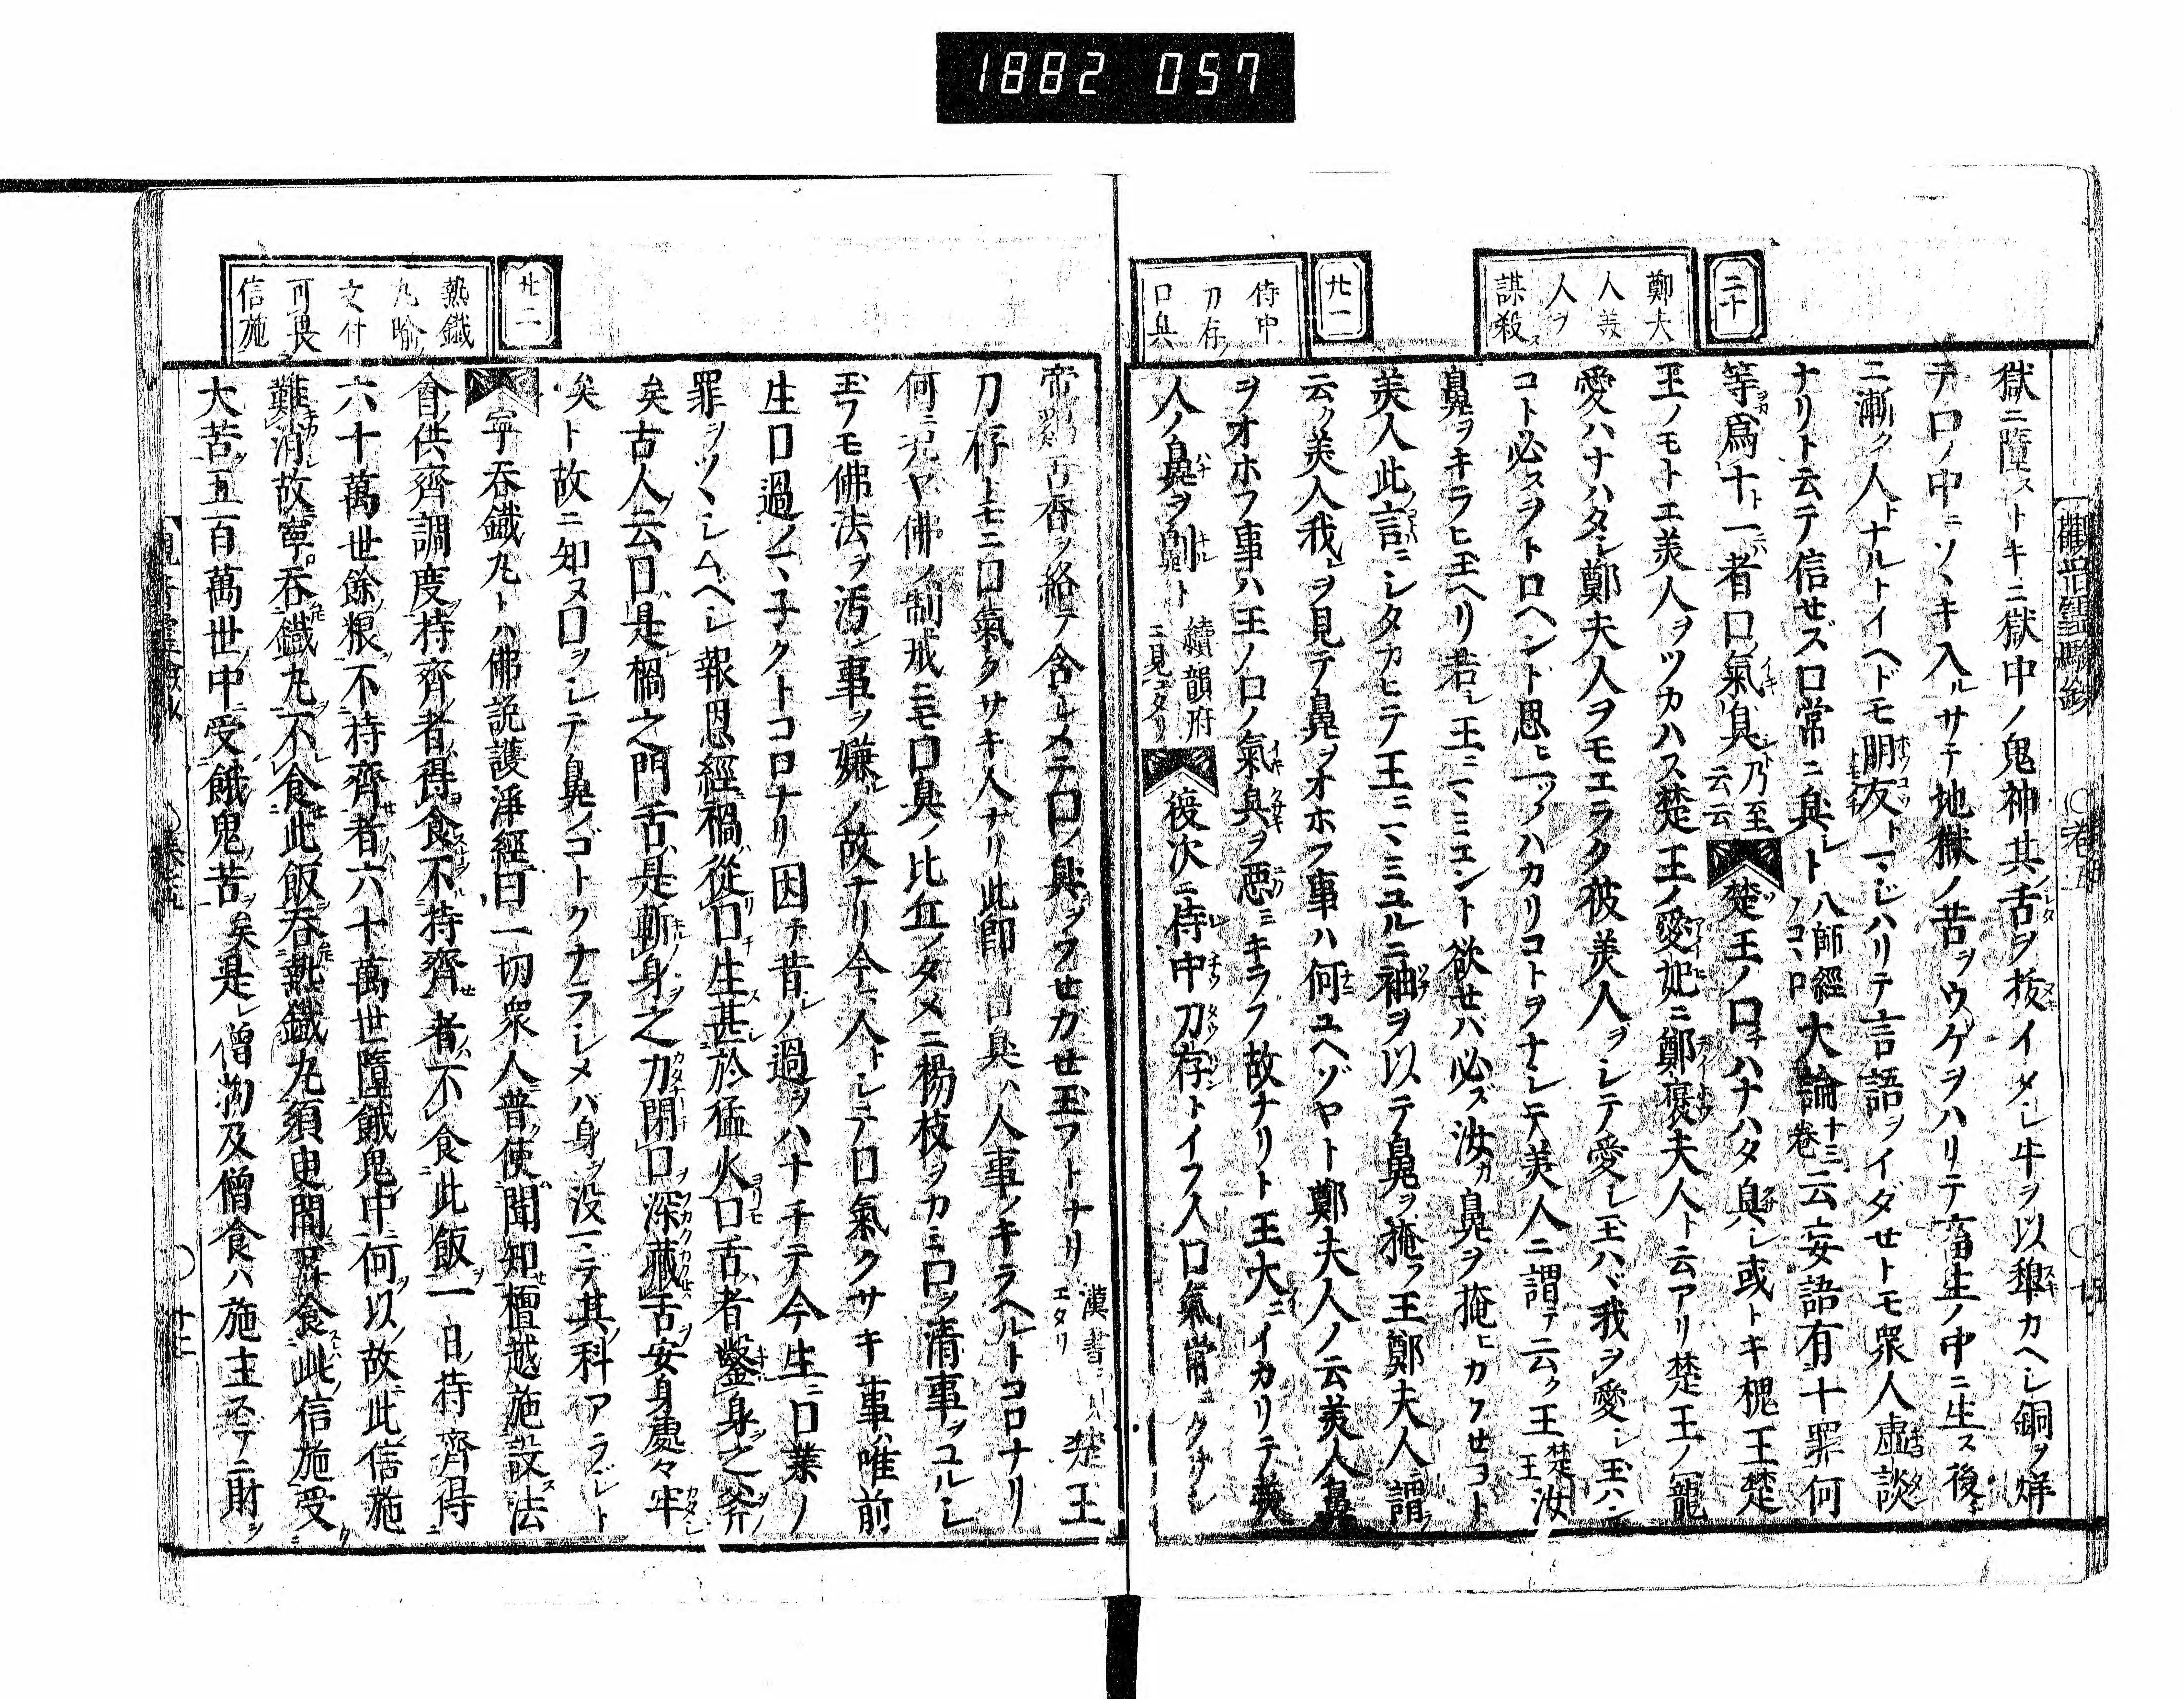 1882 057
二十
鄭夫
人美
人ヲ
謀殺ス
廿一
侍中
刀存ノ
口臭
獄ニ墮ストキニ獄中ノ鬼神其舌ヲ抜イメレ牛ヲ以犁カヘシ銅ヲ烊
テ口ノ中ニソヽキ入ルサテ地獄ノ苦ヲウケヲハリテ畜生ノ中ニ生ス後
ニ漸ク人トナルトイヘドモ朋友トマジハリテ言語ヲイダセトモ衆人虚談
ナリト云テ信セズ口常ニ臭シト八師經ノコヽロ大論十三卷云妄語有十罪何
等爲十一者口氣臭乃至云云楚王ノ口チハナハタ臭シ或トキ槐王楚
王ノモトエ美人ヲツカハス楚王ノ愛妃ニ鄭褏夫人ト云アリ楚王ノ寵
愛ハナハタシ鄭夫人ヲモエラク彼美人ヲシテ愛シ玉ハヾ我ヲ愛シ玉ハン
コト必スヲトロヘント思ヒ一ツノハカリコトヲナシテ美人ニ謂テ云ク王楚王汝カ
鼻ヲキラヒ玉ヘリ若シ王ニマミエント欲セバ必ズ汝カ鼻ヲ掩ヒカクセコト
美人此言ニシタカヒテ王ニマミユルニ袖ヲ以テ鼻ヲ掩フ王鄭夫人謂
云ク美人我ヲ見テ鼻ヲオホフ事ハ何ユヘゾヤト鄭夫人ノ云美人鼻
ヲオホフ事ハ王ノ口ノ氣臭ヲ惡ミキラフ故ナリト王大ニイカリテ美
人ノ鼻ヲ劓ト續韻府ニ見エタリ復次ニ侍中刀存トイフ人口氣常ニクサシ
廿二
熱鐵
丸喩ノ
文付
可畏
信施
帝雞舌香ヲ給テ含シメテ口ノ臭ヲフセカセ玉フトナリ漢書ニ見エタリ楚王
刀存トモニ口氣クサキ人ナリ此即口臭ハ人事ノキラヘルトコロナリ
何ニ况ヤ佛ノ制戒ニモ口臭ノ比丘ノタメニ楊枝ヲカミ口ヲ清事ヲユルシ
玉フモ佛法ヲ汚シ事ヲ嫌ルノ故ナリ今人トシテ口氣クサキ事ハ唯前
生口過ノマネクトコロナリ因テ昔シノ過ヲハナチテ今生ニ口業ノ
罪ヲツヽシムベシ報恩經禍從口生甚於猛火口舌者鑿身之斧
矣古人云口是禍之門舌是斬身之刀閉口深藏舌安身處々牢
矣ト故ニ知ヌ口ヲシテ鼻ノゴトクナラシメハ身ヲ没マデ其科アラジト
寧吞鐵丸トハ佛説護淨經曰一切衆人普使聞知檀越施設法
會供齊調度持齊者得食不持齊者不食此飯一日持齊得
六十萬世餘粮不持齊者六十萬世墮餓鬼中何以故此信施
難消故寧吞鐵丸不食此飯吞熱鐵丸須臾間耳食此信施受
大苦五百萬世中受餓鬼苦矣是レ僧物及僧食ハ施主ステニ財ヲ